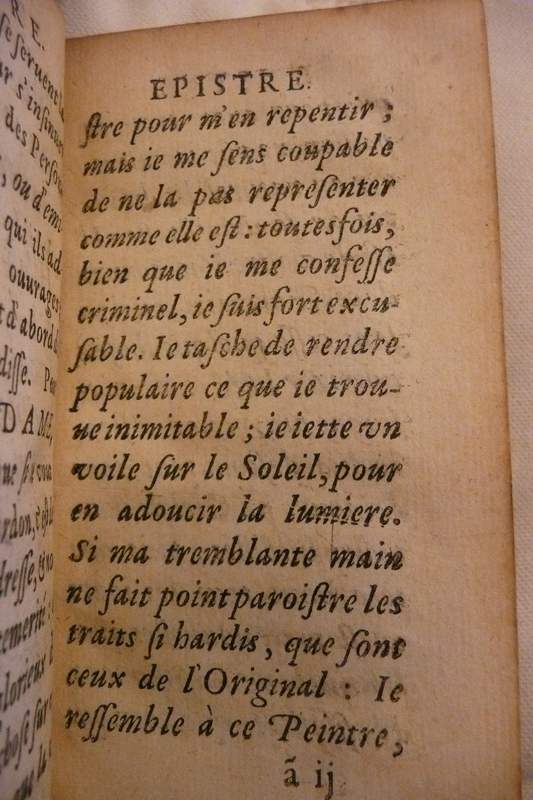 EPISTRE.
ſtre pour m'en repentir ;
mais ie me ſens coupable
de ne la pas repreſenter
comme elle eſt : toutesfois,
bien que ie me confeſſe
criminel, ie ſuis fort excu-
ſable. Ie taſche de rendre
populaire ce que ie trou-
ue inimitable ; ie iette vn
voile ſur le Soleil, pour
en adoucir la lumiere.
Si ma tremblante main
ne fait point paroiſtre les
traits ſi hardis, que ſont
ceux de l'Original : Ie
reſſemble à ce Peintre,
ã ij
R E.
ſe ſeruent
r s'inſinuer
des Perſon
, ou d'emi
qui ils ad
ouurages
t d'abord
diſſe.
DAME,